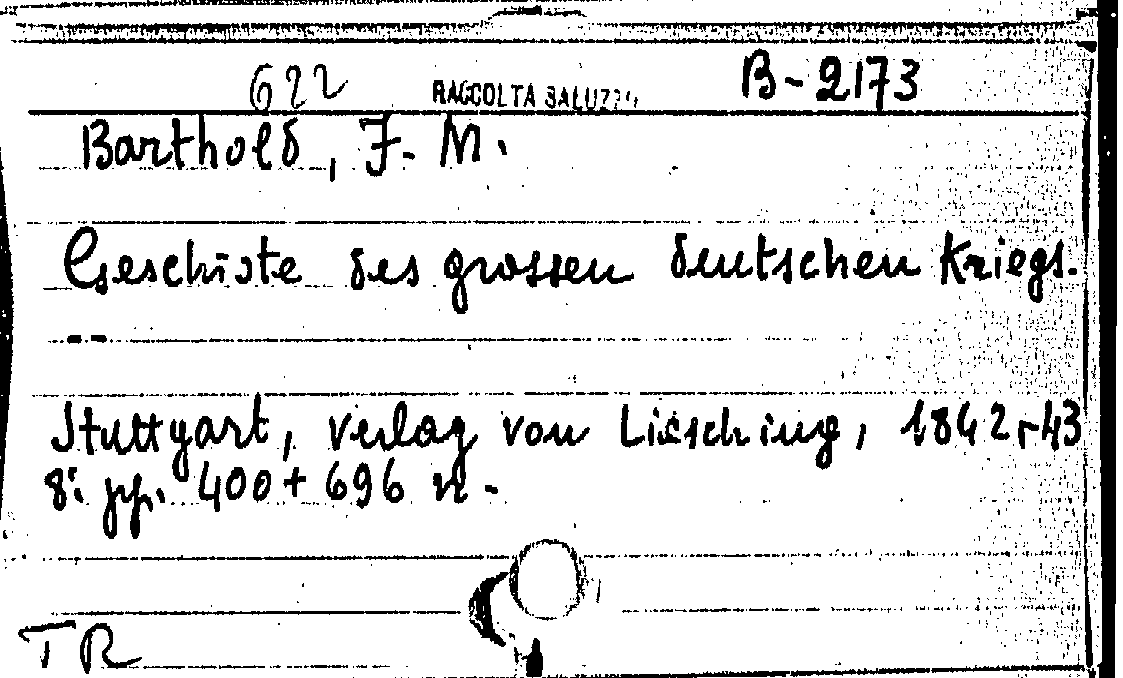 622 RACCOLTA SALUZZO B-2173
Barthold, F. M.
Geschiste des grossen deutschen Kriegs.
--
Stuttgart, Verlag von Liesching, 1842-43
8º pp. 400+696 n-
TR